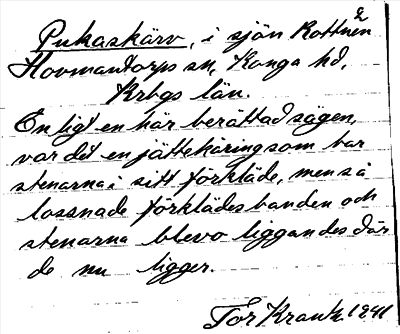 2
Pukaskärv, i sjön Rottnen
Hovmantorps sn, Konga hd,
Krbgs län.
Enligt en här berättad sägen,
var det en jättekäring som bar
stenarna i sitt förkläde, men så
lossnade förklädesbanden och
stenarna blevo liggandes där
de nu ligger.
Tor Krantz 1941